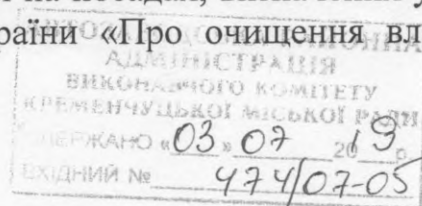 на посадах, визначених у
раїни «Про очищення вл
АДМІНІСТРАЦІЯ
ВИКОНАВЧОГО КОМІТЕТУ
КРЕМЕНЧУЦЬКОЇ МІСЬКОЇ РАДИ
ОДЕРЖАНО «03» 07 2019 р.
ВХІДНИЙ № 474/07-05